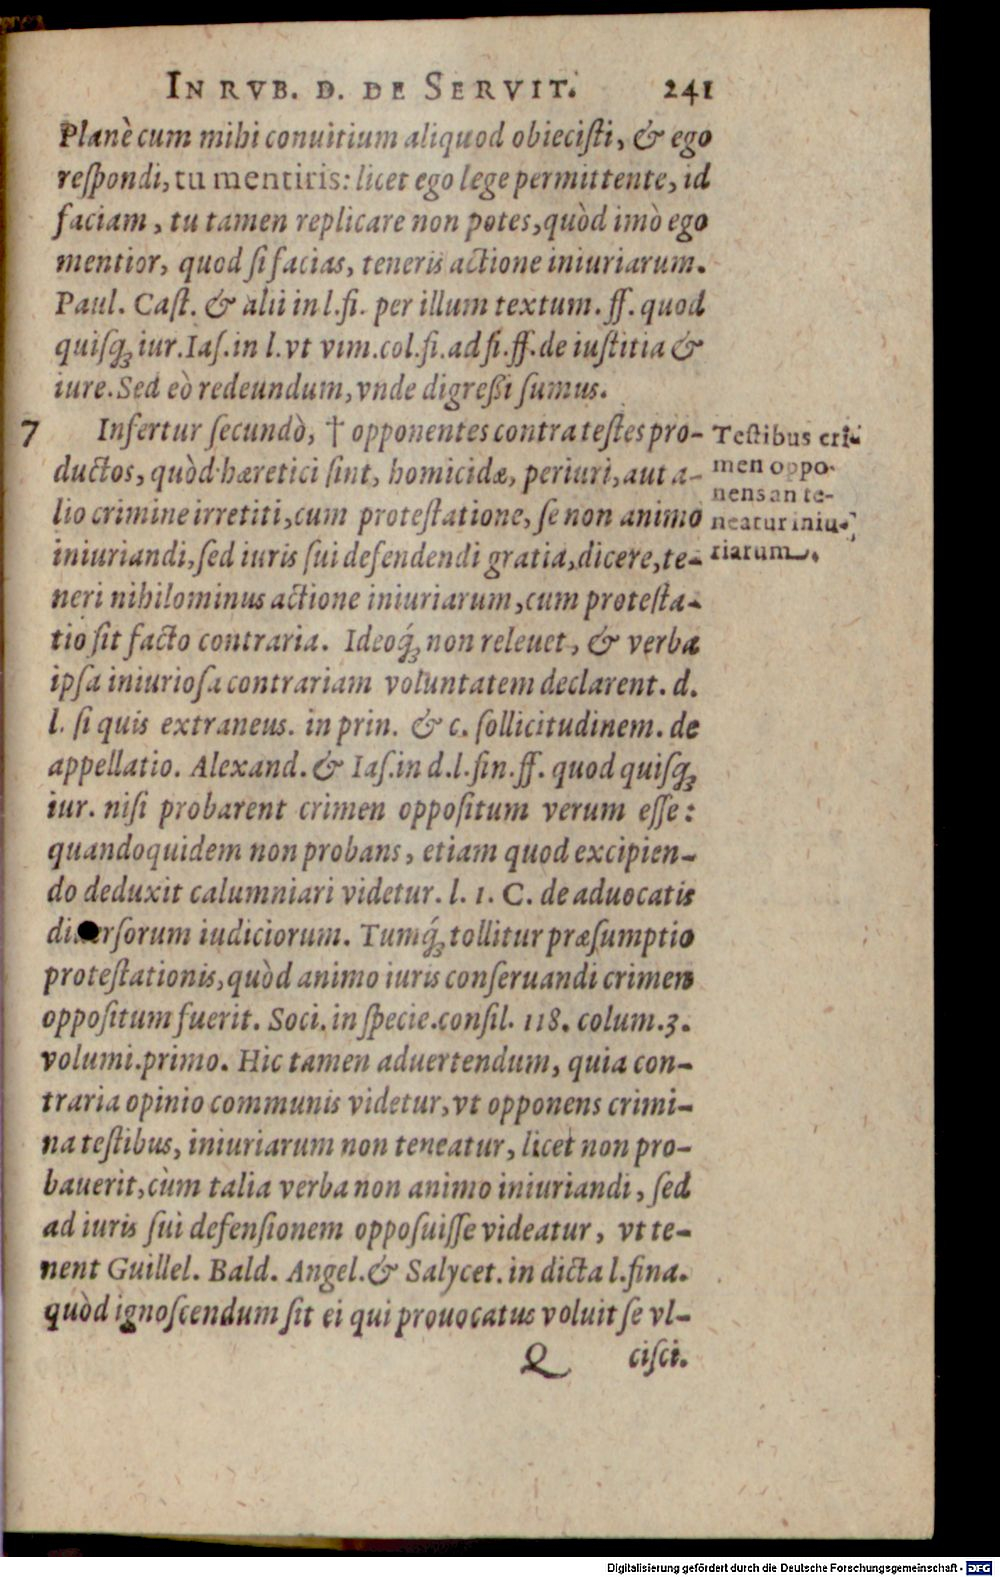 IN RVB. D. DE SERVIT. 241
Planè cum mihi conuitium aliquod obiecisti, & ego
respondi, tu mentiris: licet ego lege permittente, id
faciam, tu tamen replicare non potes, quòd imò ego
mentior, quod si facias, teneris actione iniuriarum.
Paul. Cast. & alii in l. fi. per illum textum. ff. quod
quisq; iur. Ias. in l. vt vim. col. fi. ad fi. ff. de iustitia &
iure. Sed eò redeundum, vnde digressi sumus.
7 Infertur secundò, † opponentes contra testes pro-
ductos, quòd hæretici sint, homicidæ, periuri, aut a-
lio crimine irretiti, cum protestatione, se non animo
iniuriandi, sed iuris sui defendendi gratia, dicere, te-
neri nihilominus actione iniuriarum, cum protesta-
tio sit facto contraria. Ideoq́; non releuet, & verba
ipsa iniuriosa contrariam voluntatem declarent. d.
l. si quis extraneus. in prin. & c. sollicitudinem. de
appellatio. Alexand. & Ias. in d. l. fin. ff. quod quisq;
iur. nisi probarent crimen oppositum verum esse:
quandoquidem non probans, etiam quod excipien-
do deduxit calumniari videtur. l. 1. C. de aduocatis
diuersorum iudiciorum. Tumq́; tollitur præsumptio
protestationis, quòd animo iuris conseruandi crimen
oppositum fuerit. Soci. in specie. consil. 118. colum. 3.
volumi. primo. Hic tamen aduertendum, quia con-
traria opinio communis videtur, vt opponens crimi-
na testibus, iniuriarum non teneatur, licet non pro-
bauerit, cùm talia verba non animo iniuriandi, sed
ad iuris sui defensionem opposuisse videatur, vt te-
nent Guillel. Bald. Angel. & Salycet. in dicta l. fina.
quòd ignoscendum sit ei qui prouocatus voluit se vl-
Q cisci.
Testibus cri-
men oppo-
nens an te-
neatur iniu-
riarum.
Digitalisierung gefördert durch die Deutsche Forschungsgemeinschaft - DFG